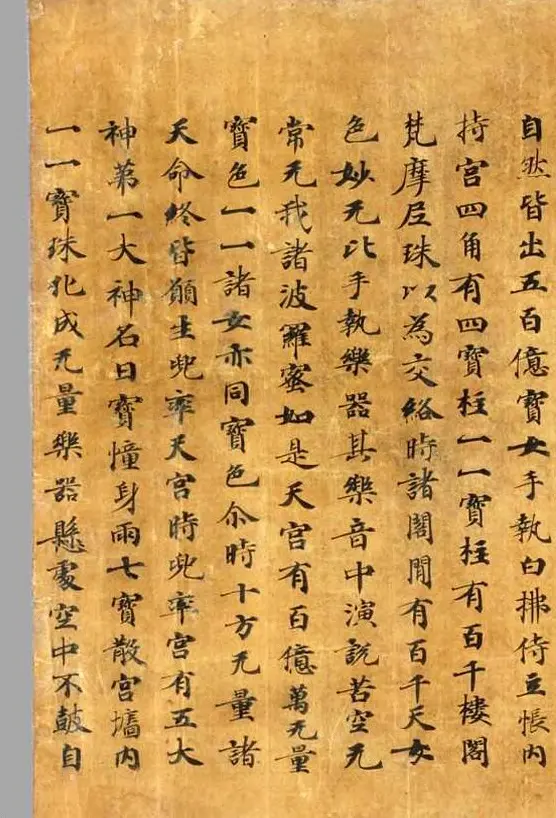 自然皆出五百億寶女手執白拂侍立帳内
持宮四角有四寶柱一一寶柱有百千樓閣
梵摩尼珠以為交絡時諸閣閒有百千天女
色妙无比手執樂器其樂音中演說苦空无
常无我諸波羅蜜如是天宮有百億萬无量
寶色一一諸女亦同寶色尒時十方无量諸
天命終皆願生兜率天宮時兜率宮有五大
神第一大神名曰寶憧身雨七寶散宮墻内
一一寶珠化成无量樂器懸處空中不鼓自